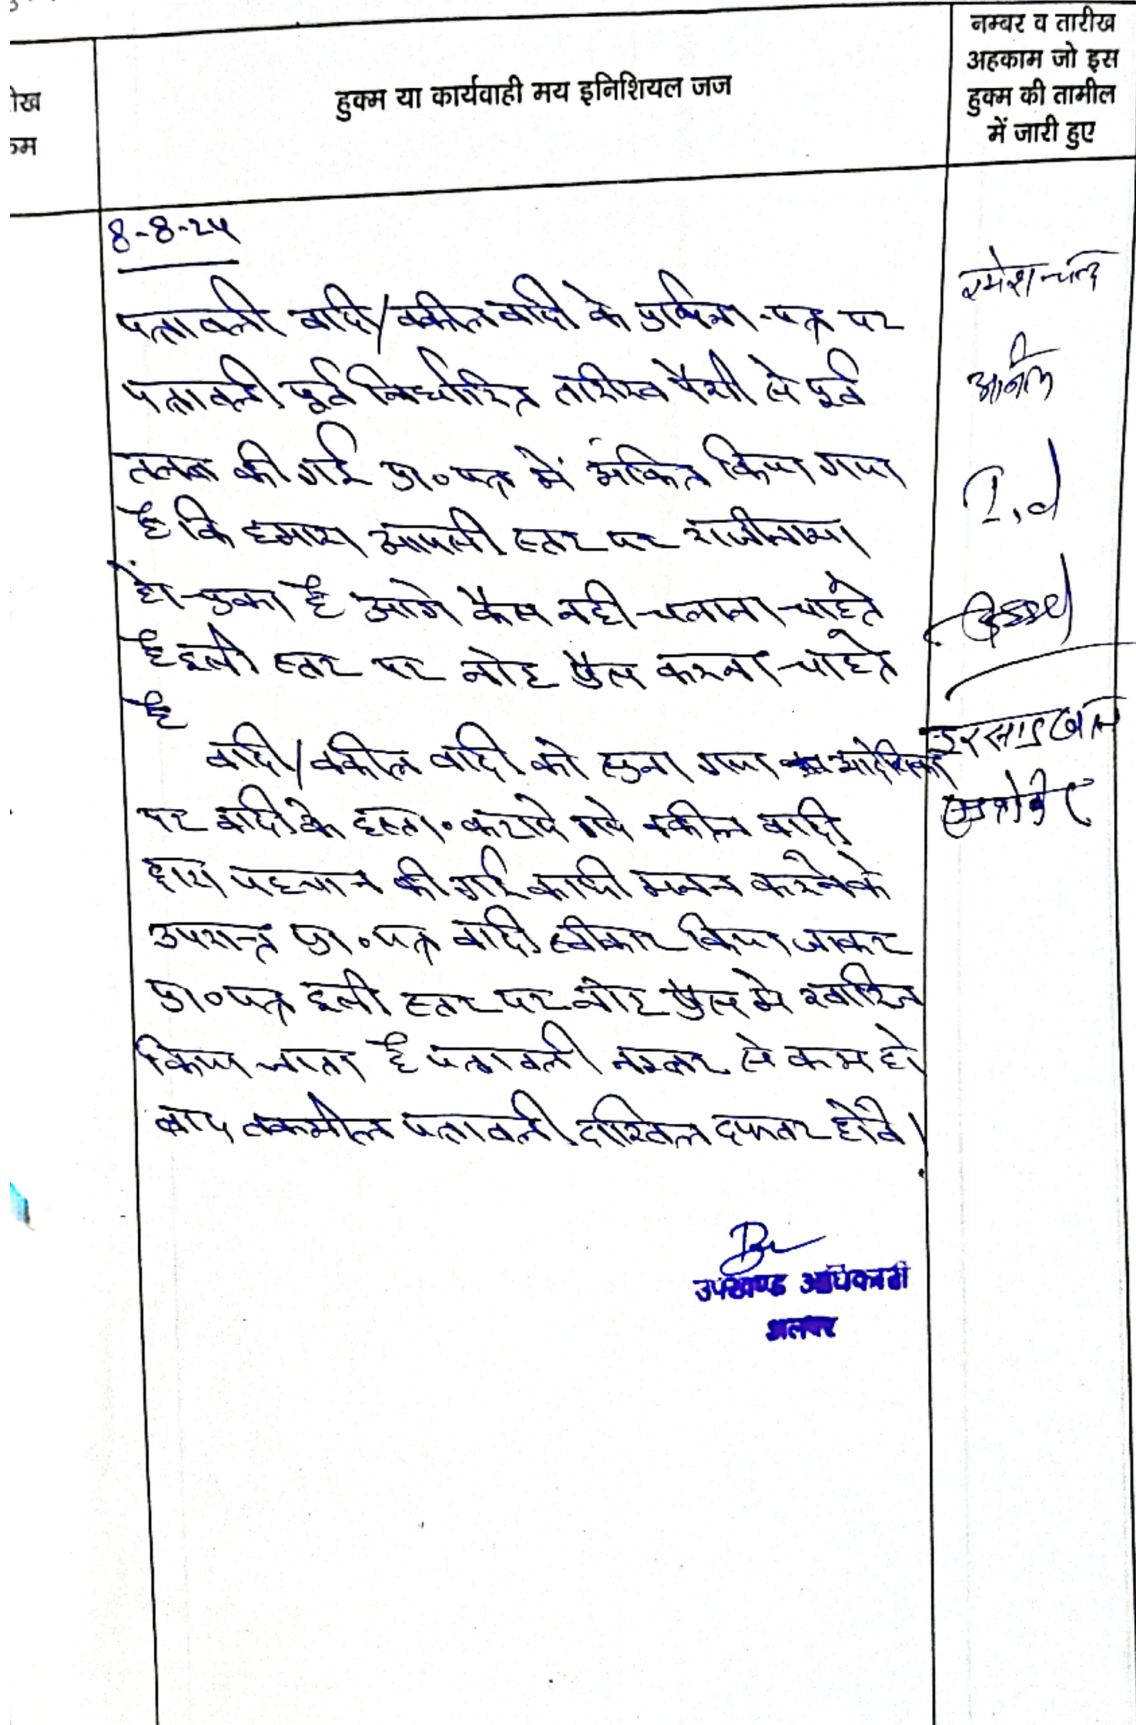 नम्बर व तारीख
अहकाम जो इस
हुक्म की तामील
में जारी हुए
हुक्म या कार्यवाही मय इनिशियल जज
8-8-25
पत्रावली वादी/वकील वादी के प्रार्थना-पत्र पर
पत्रावली पूर्व निर्धारित तारीख पेशी से पूर्व
तलब की गई प्रा०पत्र में अंकित किया गया
है कि हमारा आपसी स्तर पर राजीनामा
हो चुका है आगे केस नही चलाना चाहते
है इसी स्तर पर नोट प्रेस करना चाहते
है
वादी/वकील वादी को सुना गया आदेशिका
पर वादी के हस्ता० कराये गये वकील वादी
द्वारा पहचान की गई काफी मनन करने के
उपरान्त प्रा०पत्र वादी स्वीकार किया जाकर
प्रा०पत्र इसी स्तर पर नोट प्रेस मे खारिज
किया जाता है पत्रावली नम्बर से कम हो
बाद तकमील पत्रावली दाखिल दफ्तर होवे।
रमेश चन्द
अनिल
उपखण्ड अधिकारी
अलवर